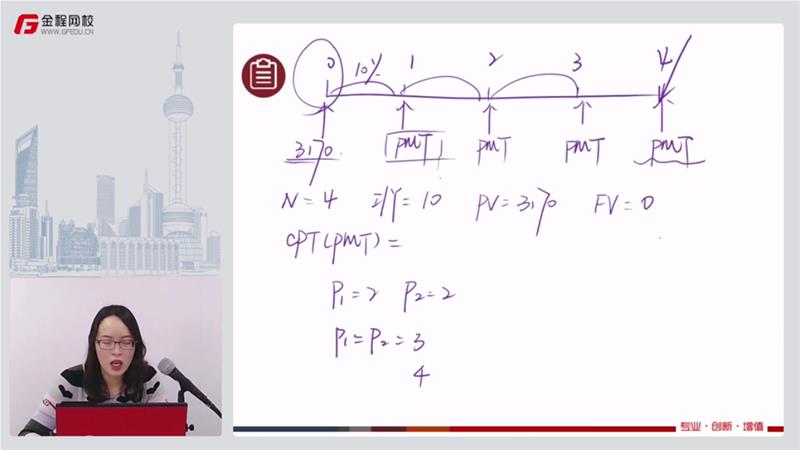 金程网校
WWW.GFEDU.CN
0 10% 1 2 3 4
3170 PMT PMT PMT PMT
N=4 I/Y=10 PV=3170 FV=0
CPT(PMT)=
P1=2 P2=2
P1=P2=3
4
专业·创新·增值